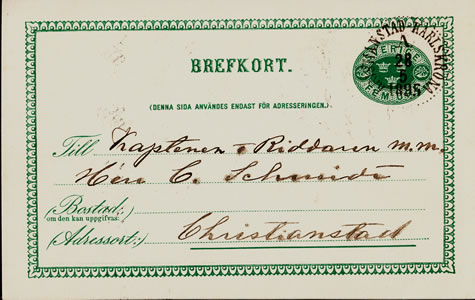 BREFKORT.
(DENNA SIDA ANVÄNDES ENDAST FÖR ADRESSERINGEN.)
Till Kaptenen o Riddaren m.m.
Herr C. Schmidt
(Bostad:
om den kan uppgifvas.)
(Adressort:) Christianstad
KARLSKRONA
A
28
5
1895
SVERIGE
FEM ÖRE